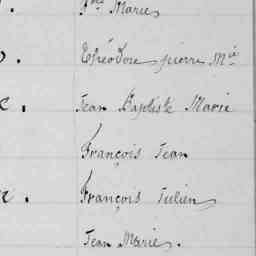 Marie
Théodore pierre Mie
Jean Baptiste Marie
François Jean
François Julien
Jean Marie.